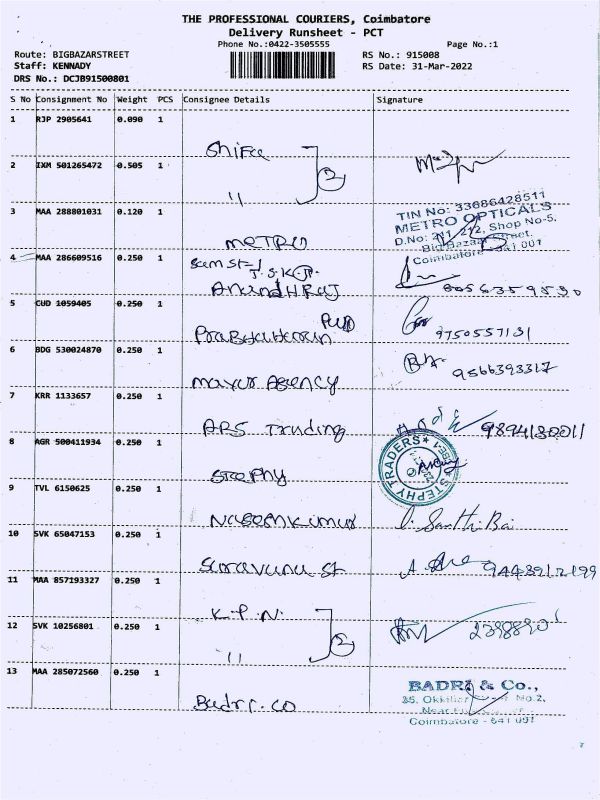 THE PROFESSIONAL COURIERS, Coimbatore
Delivery Runsheet - PCT
Phone No.:0422-3505555 Page No.:1
Route: BIGBAZARSTREET RS No.: 915008
Staff: KENNADY RS Date: 31-Mar-2022
DRS No.: DCJB91500801
S No Consignment No Weight PCS Consignee Details Signature
1 RJP 2905641 0.090 1
Shifa
2 IXM 501265472 0.505 1
"
3 MAA 288801031 0.120 1
METRO
TIN No: 33686428511
METRO OPTICALS
D.No: 211, 212, Shop No-5,
Big Bazaar Street,
Coimbatore - 641 001
4 MAA 286609516 0.250 1
Anand H Raj
5 CUD 1059405 0.250 1
Prabhakaran 9750557131
6 BDG 530024870 0.250 1
mayur Agency 9566393317
7 KRR 1133657 0.250 1
ARS Trading 9894130011
8 AGR 500411934 0.250 1
STEPHY TRADERS
Stephy
9 TVL 6150625 0.250 1
10 SVK 65047153 0.250 1
11 MAA 857193327 0.250 1
K.P.N.
12 SVK 10256801 0.250 1
"
13 MAA 285072560 0.250 1
Badri.co
BADRI & Co.,
Coimbatore - 641 001